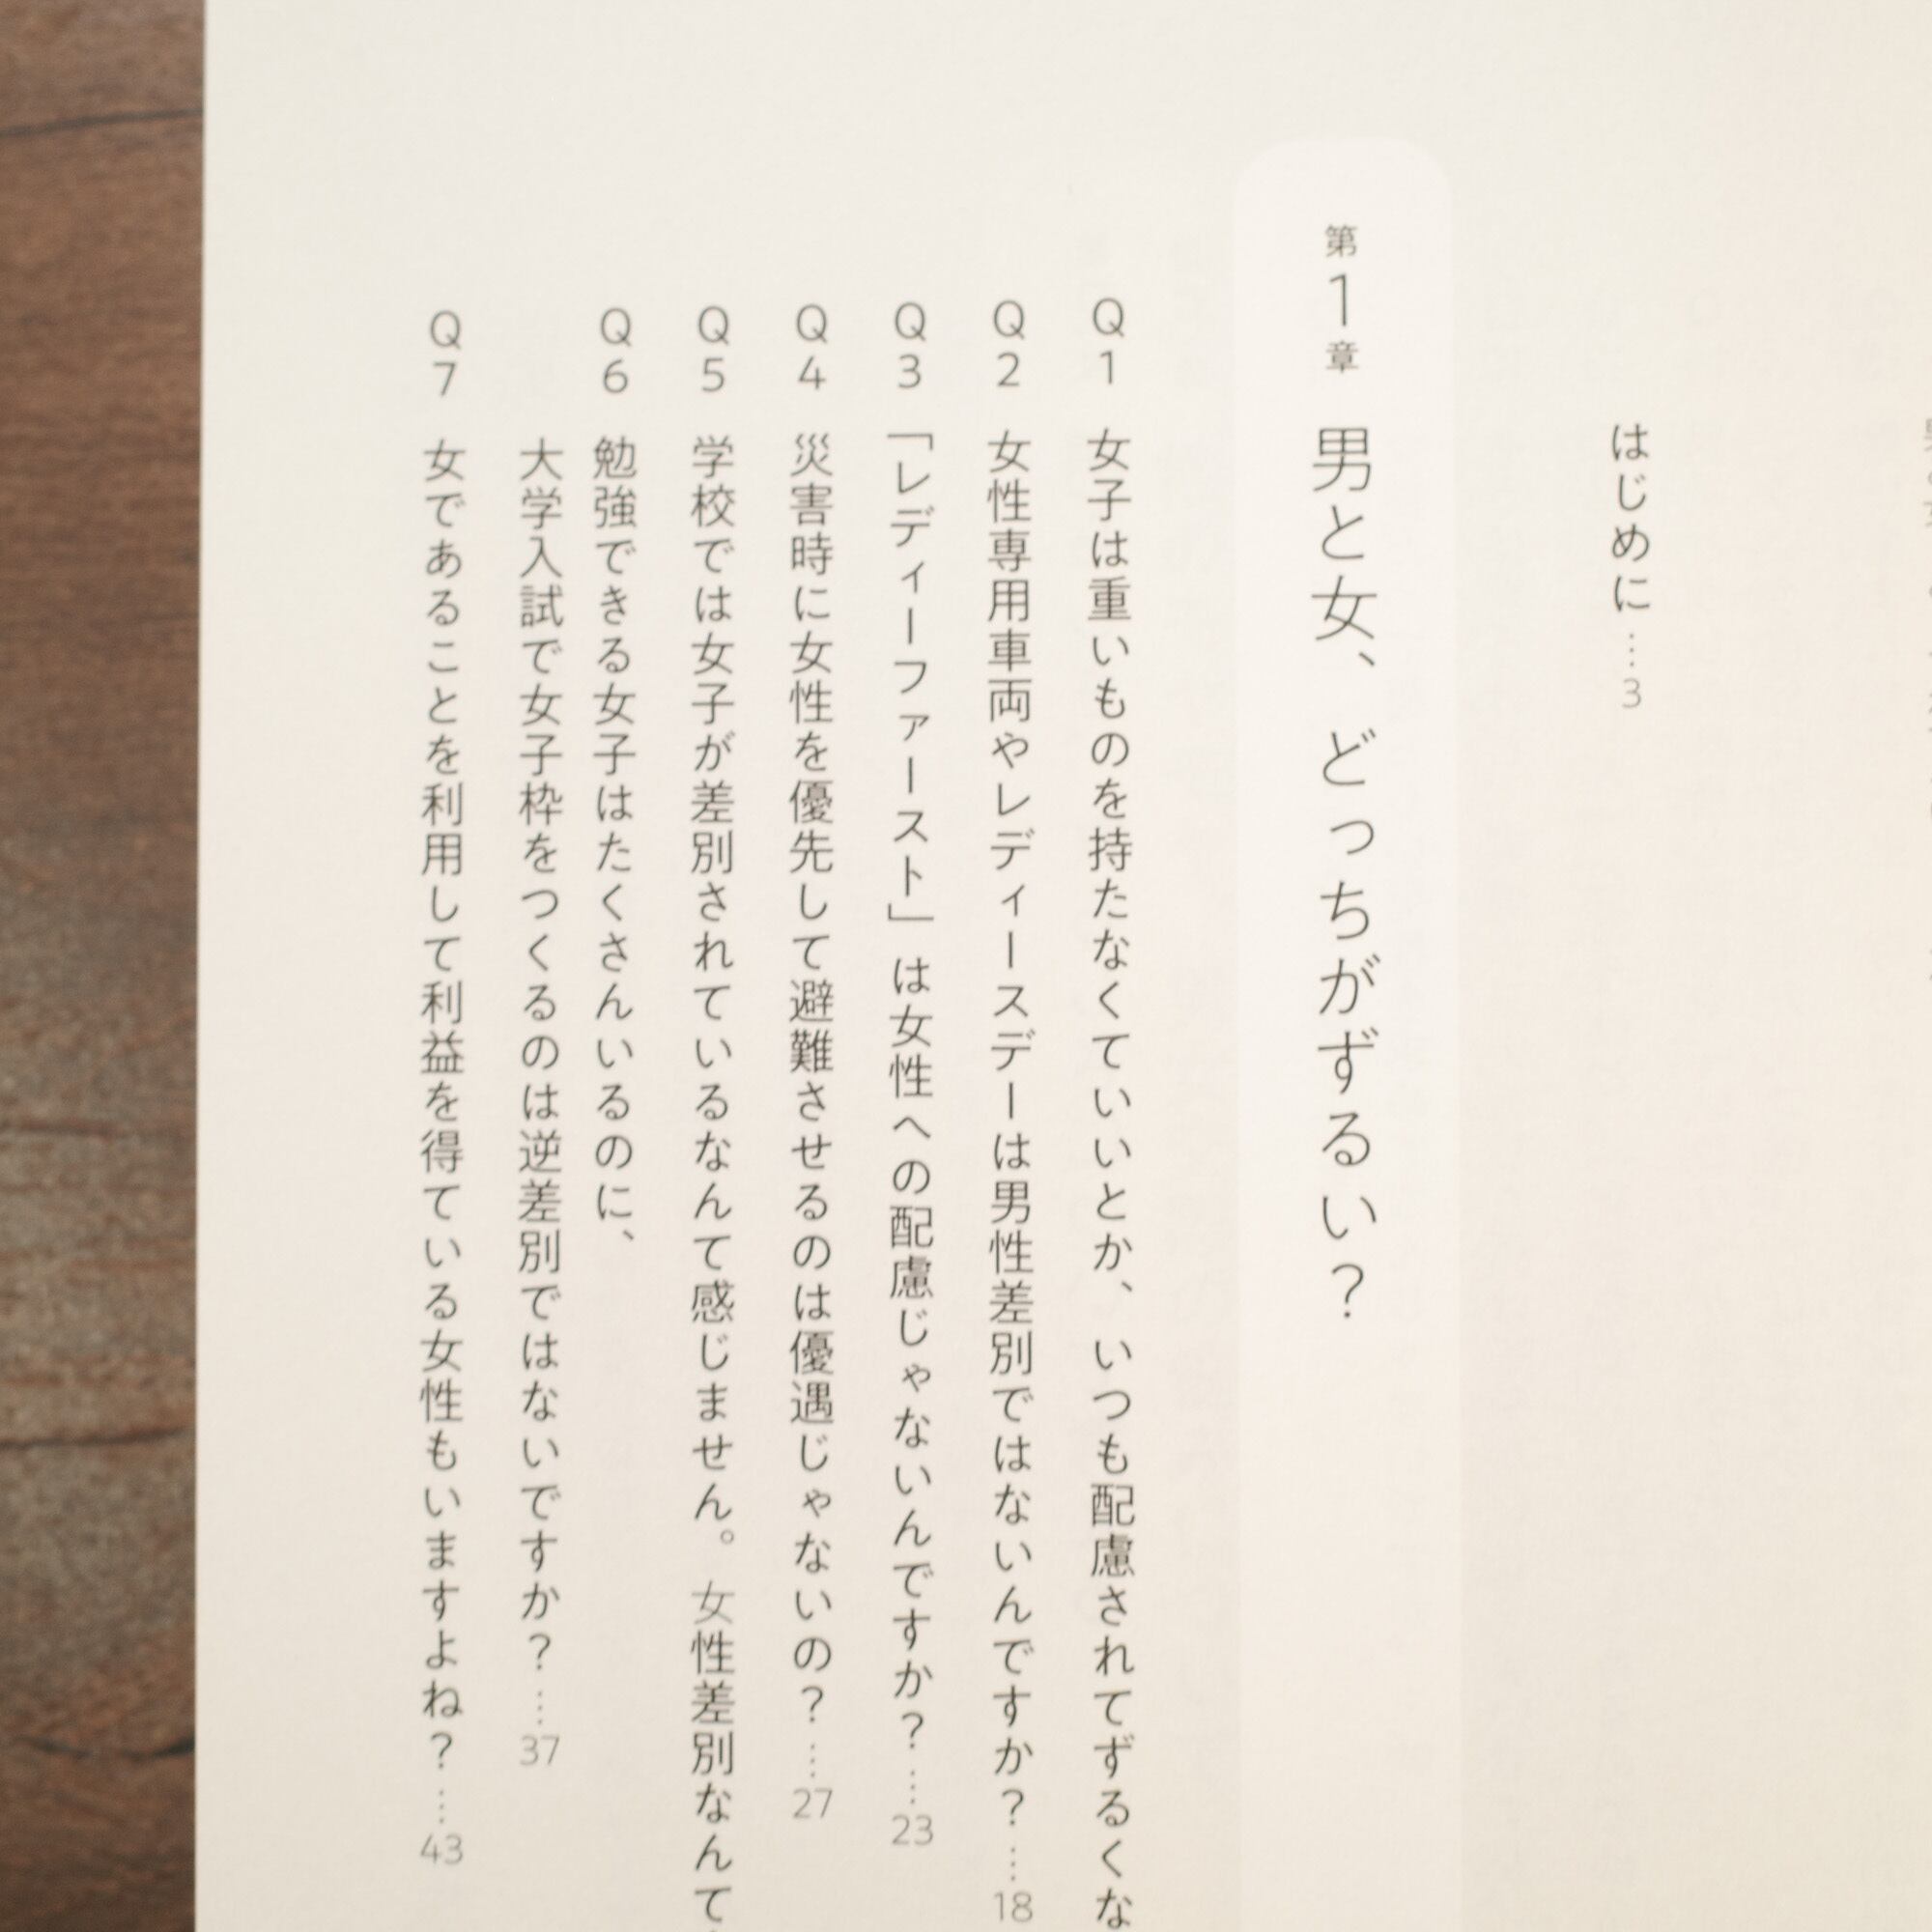 はじめに…3
第1章 男と女、どっちがずるい？
Q1 女子は重いものを持たなくていいとか、いつも配慮されてずるくな
Q2 女性専用車両やレディースデーは男性差別ではないんですか？…18
Q3 「レディーファースト」は女性への配慮じゃないんですか？…23
Q4 災害時に女性を優先して避難させるのは優遇じゃないの？…27
Q5 学校では女子が差別されているなんて感じません。女性差別なんて
Q6 勉強できる女子はたくさんいるのに、
大学入試で女子枠をつくるのは逆差別ではないですか？…37
Q7 女であることを利用して利益を得ている女性もいますよね？…43